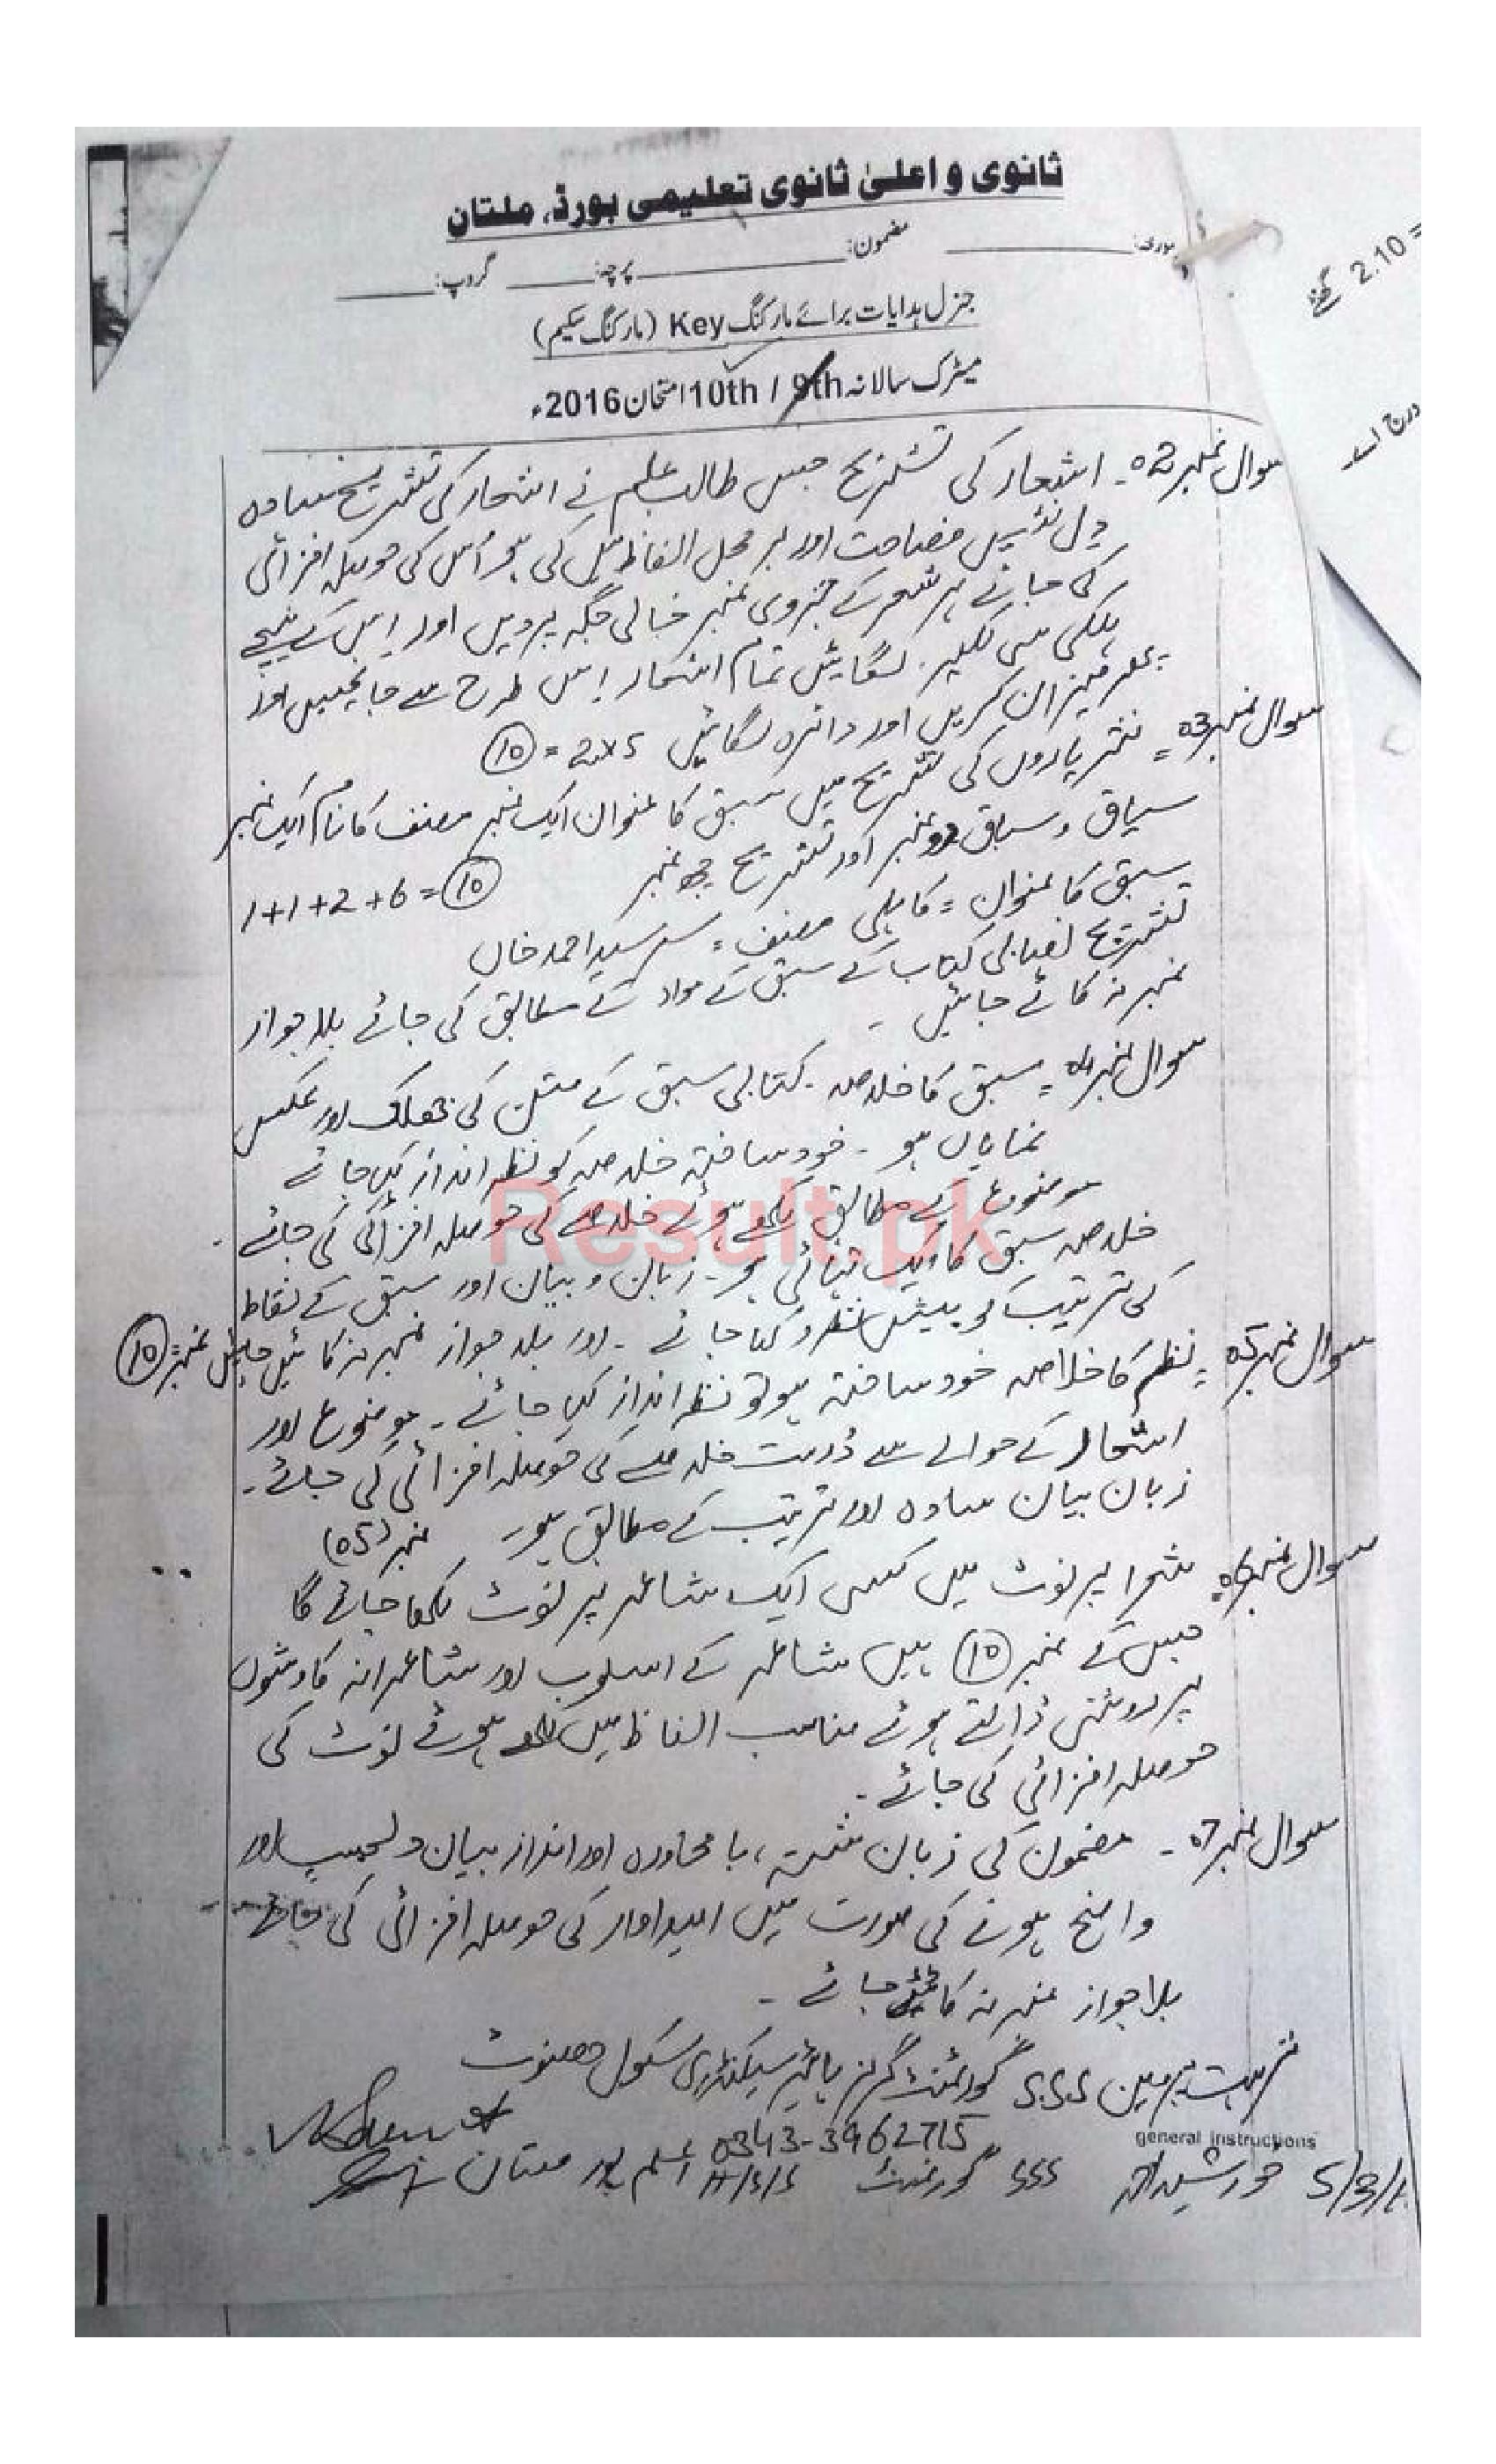 ثانوی و اعلیٰ ثانوی تعلیمی بورڈ، ملتان
مضمون: پرچہ: گروپ:
جنرل ہدایات برائے مارکنگ Key (مارکنگ سکیم)
میٹرک سالانہ 9th / 10th امتحان 2016ء
2.10 =
سوال نمبر 02۔ اشعار کی تشریح جس طالب علم نے اشعار کی تشریح سادہ
دل نشیں فصاحت اور بر محل الفاظ میں کی ہو اُس کی حوصلہ افزائی
کی جائے ہر شعر کے جزوی نمبر خالی جگہ پر دیں اور اِس کے نیچے
ہلکی سی لکیر لگائیں تمام اشعار اِس طرح سے جانچیں اور
پھر میزان کریں اور دائرہ لگائیں 2x5 = 10
سوال نمبر 03 = نثر پاروں کی تشریح میں سبق کا عنوان ایک نمبر مصنف کا نام ایک نمبر
سیاق و سباق دو نمبر اور تشریح چھ نمبر 1+1+2+6 = 10
سبق کا عنوان = کاہلی مصنف = سر سید احمد خاں
تشریح نصابی کتاب کے سبق کے مواد کے مطابق کی جائے بلا جواز
نمبر نہ کاٹے جائیں ۔
سوال نمبر 04 = سبق کا خلاصہ ۔ کتابی سبق کے متن کی جھلک اور عکس
نمایاں ہو ۔ خود ساختہ خلاصہ کو نظر انداز کیا جائے
موضوع کے مطابق لکھے ہوئے خلاصے کی حوصلہ افزائی کی جائے ۔
خلاصہ سبق کا ایک تہائی ہو ۔ زبان و بیان اور سبق کے نقاط
کی ترتیب کو پیش نظر رکھا جائے ۔ اور بلا جواز نمبر نہ کاٹیں جائیں نمبر 10
سوال نمبر 05 = نظم کا خلاصہ خود ساختہ ہو تو نظر انداز کیا جائے ۔ موضوع اور
اشعار کے حوالے سے دُرست خلاصے کی حوصلہ افزائی کی جائے ۔
زبان بیان سادہ اور ترتیب کے مطابق ہو ۔ نمبر (05)
سوال نمبر 06 = شعرا پر نوٹ میں کسی ایک شاعر پر نوٹ لکھا جائے گا
جس کے نمبر 10 ہیں شاعر کے اسلوب اور شاعرانہ کاوشوں
پر روشنی ڈالتے ہوئے مناسب الفاظ میں لکھے ہوئے نوٹ کی
حوصلہ افزائی کی جائے ۔
سوال نمبر 07 ۔ مضمون کی زبان شستہ ، با محاورہ اور انداز بیان دلچسپ اور
واضح ہونے کی صورت میں امیدوار کی حوصلہ افزائی کی جائے
بلا جواز نمبر نہ کاٹے جائے ۔
پروین S.S.S گورنمنٹ گرلز ہائیر سیکنڈری سکول
0343-3962715
general instructions
خورشید احمد SSS گورنمنٹ ملتان
Result.pk